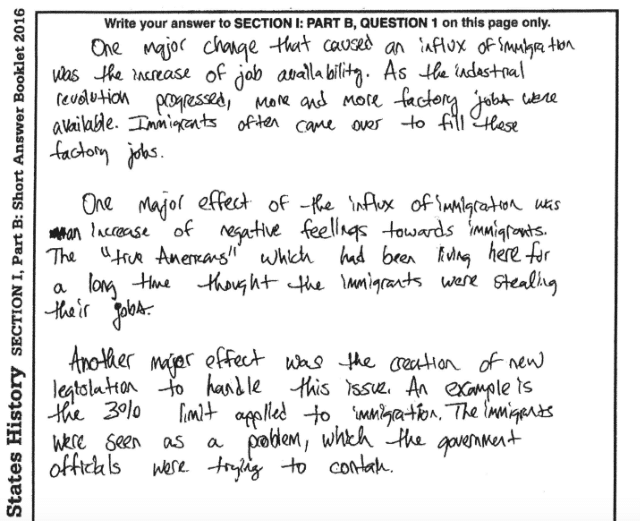 Write your answer to SECTION I: PART B, QUESTION 1 on this page only.
One major change that caused an influx of immigration
was the increase of job availability. As the industrial
revolution progressed, more and more factory jobs were
available. Immigrants often came over to fill these
factory jobs.
One major effect of the influx of immigration was
an increase of negative feelings towards immigrants.
The "true Americans" which had been living here for
a long time thought the immigrants were stealing
their jobs.
Another major effect was the creation of new
legislation to handle this issue. An example is
the 3% limit applied to immigration. The immigrants
were seen as a problem, which the government
officials were trying to contain.
States History SECTION I, Part B: Short Answer Booklet 2016